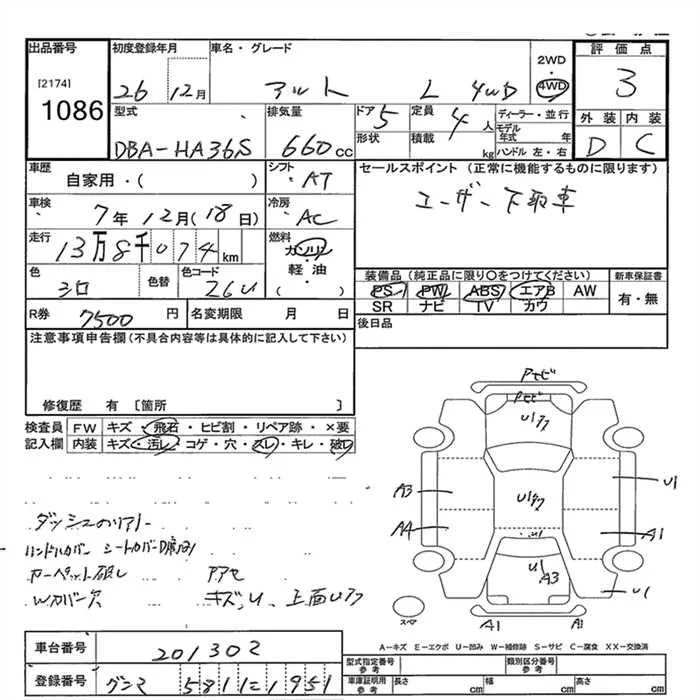 出品番号 初度登録年月 車名・グレード 2WD 評価点
[2174] 26 12月 アルト L 4WD 4WD 3
1086 型式 排気量 ドア 5 定員 4人 ディーラー・並行 外装 内装
DBA-HA36S 660cc 形状 積載 kg モデル年式 年 ハンドル 左・右 D C
車歴 自家用・( ) シフト・AT セールスポイント(正常に機能するものに限ります)
車検 7年12月(18日) 冷房・AC ユーザー下取車
走行 13万8千074km 燃料 ガソリン
色 シロ 色替 色コード 26U 軽・油 ( )
装備品(純正品に限り○をつけてください) 新車保証書
PS PW ABS エアB AW 有・無
SR ナビ TV カワ
R券 7500円 名変期限 月 日 後日品
注意事項申告欄(不具合内容等は具体的に記入して下さい)
修復歴 有 [箇所 ]
検査員 FW キズ・飛石・ヒビ割・リペア跡・×要
記入欄 内装 キズ・汚レ・コゲ・穴・スレ・キレ・破レ
ハンドルカバー シートカバーD席
カーペット破レ
Wカバー欠 キズ、U、上面Uワク
A3
A4
U1
A1
U1
A3
A1 A1
スペア
A-キズ E-エクボ U-凹み W-補修跡 S-サビ C-腐食 XX-交換済
車台番号 201302
登録番号 グンマ 581 1951
型式指定番号 参考 類別区分番号 参考
車庫証明用 参考 長さ cm 幅 cm 高さ cm